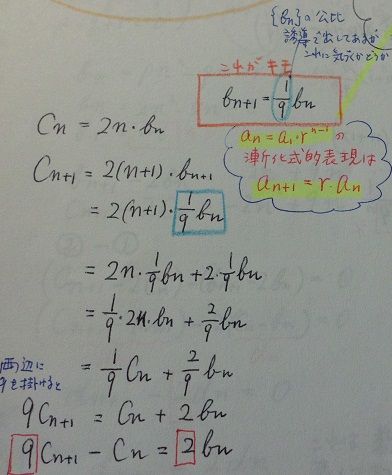 {bn}の公比
誘導で出してあるが
これに気づくかどうか
これがキモ
bn+1 = 1/9 bn
an = a1・r^n-1 の
漸化式的表現は
an+1 = r・an
Cn = 2n・bn
Cn+1 = 2(n+1)・bn+1
= 2(n+1)・1/9 bn
= 2n・1/9 bn + 2・1/9 bn
= 1/9・2n・bn + 2/9 bn
= 1/9 Cn + 2/9 bn
両辺に
9を掛けると
9Cn+1 = Cn + 2bn
9Cn+1 - Cn = 2bn